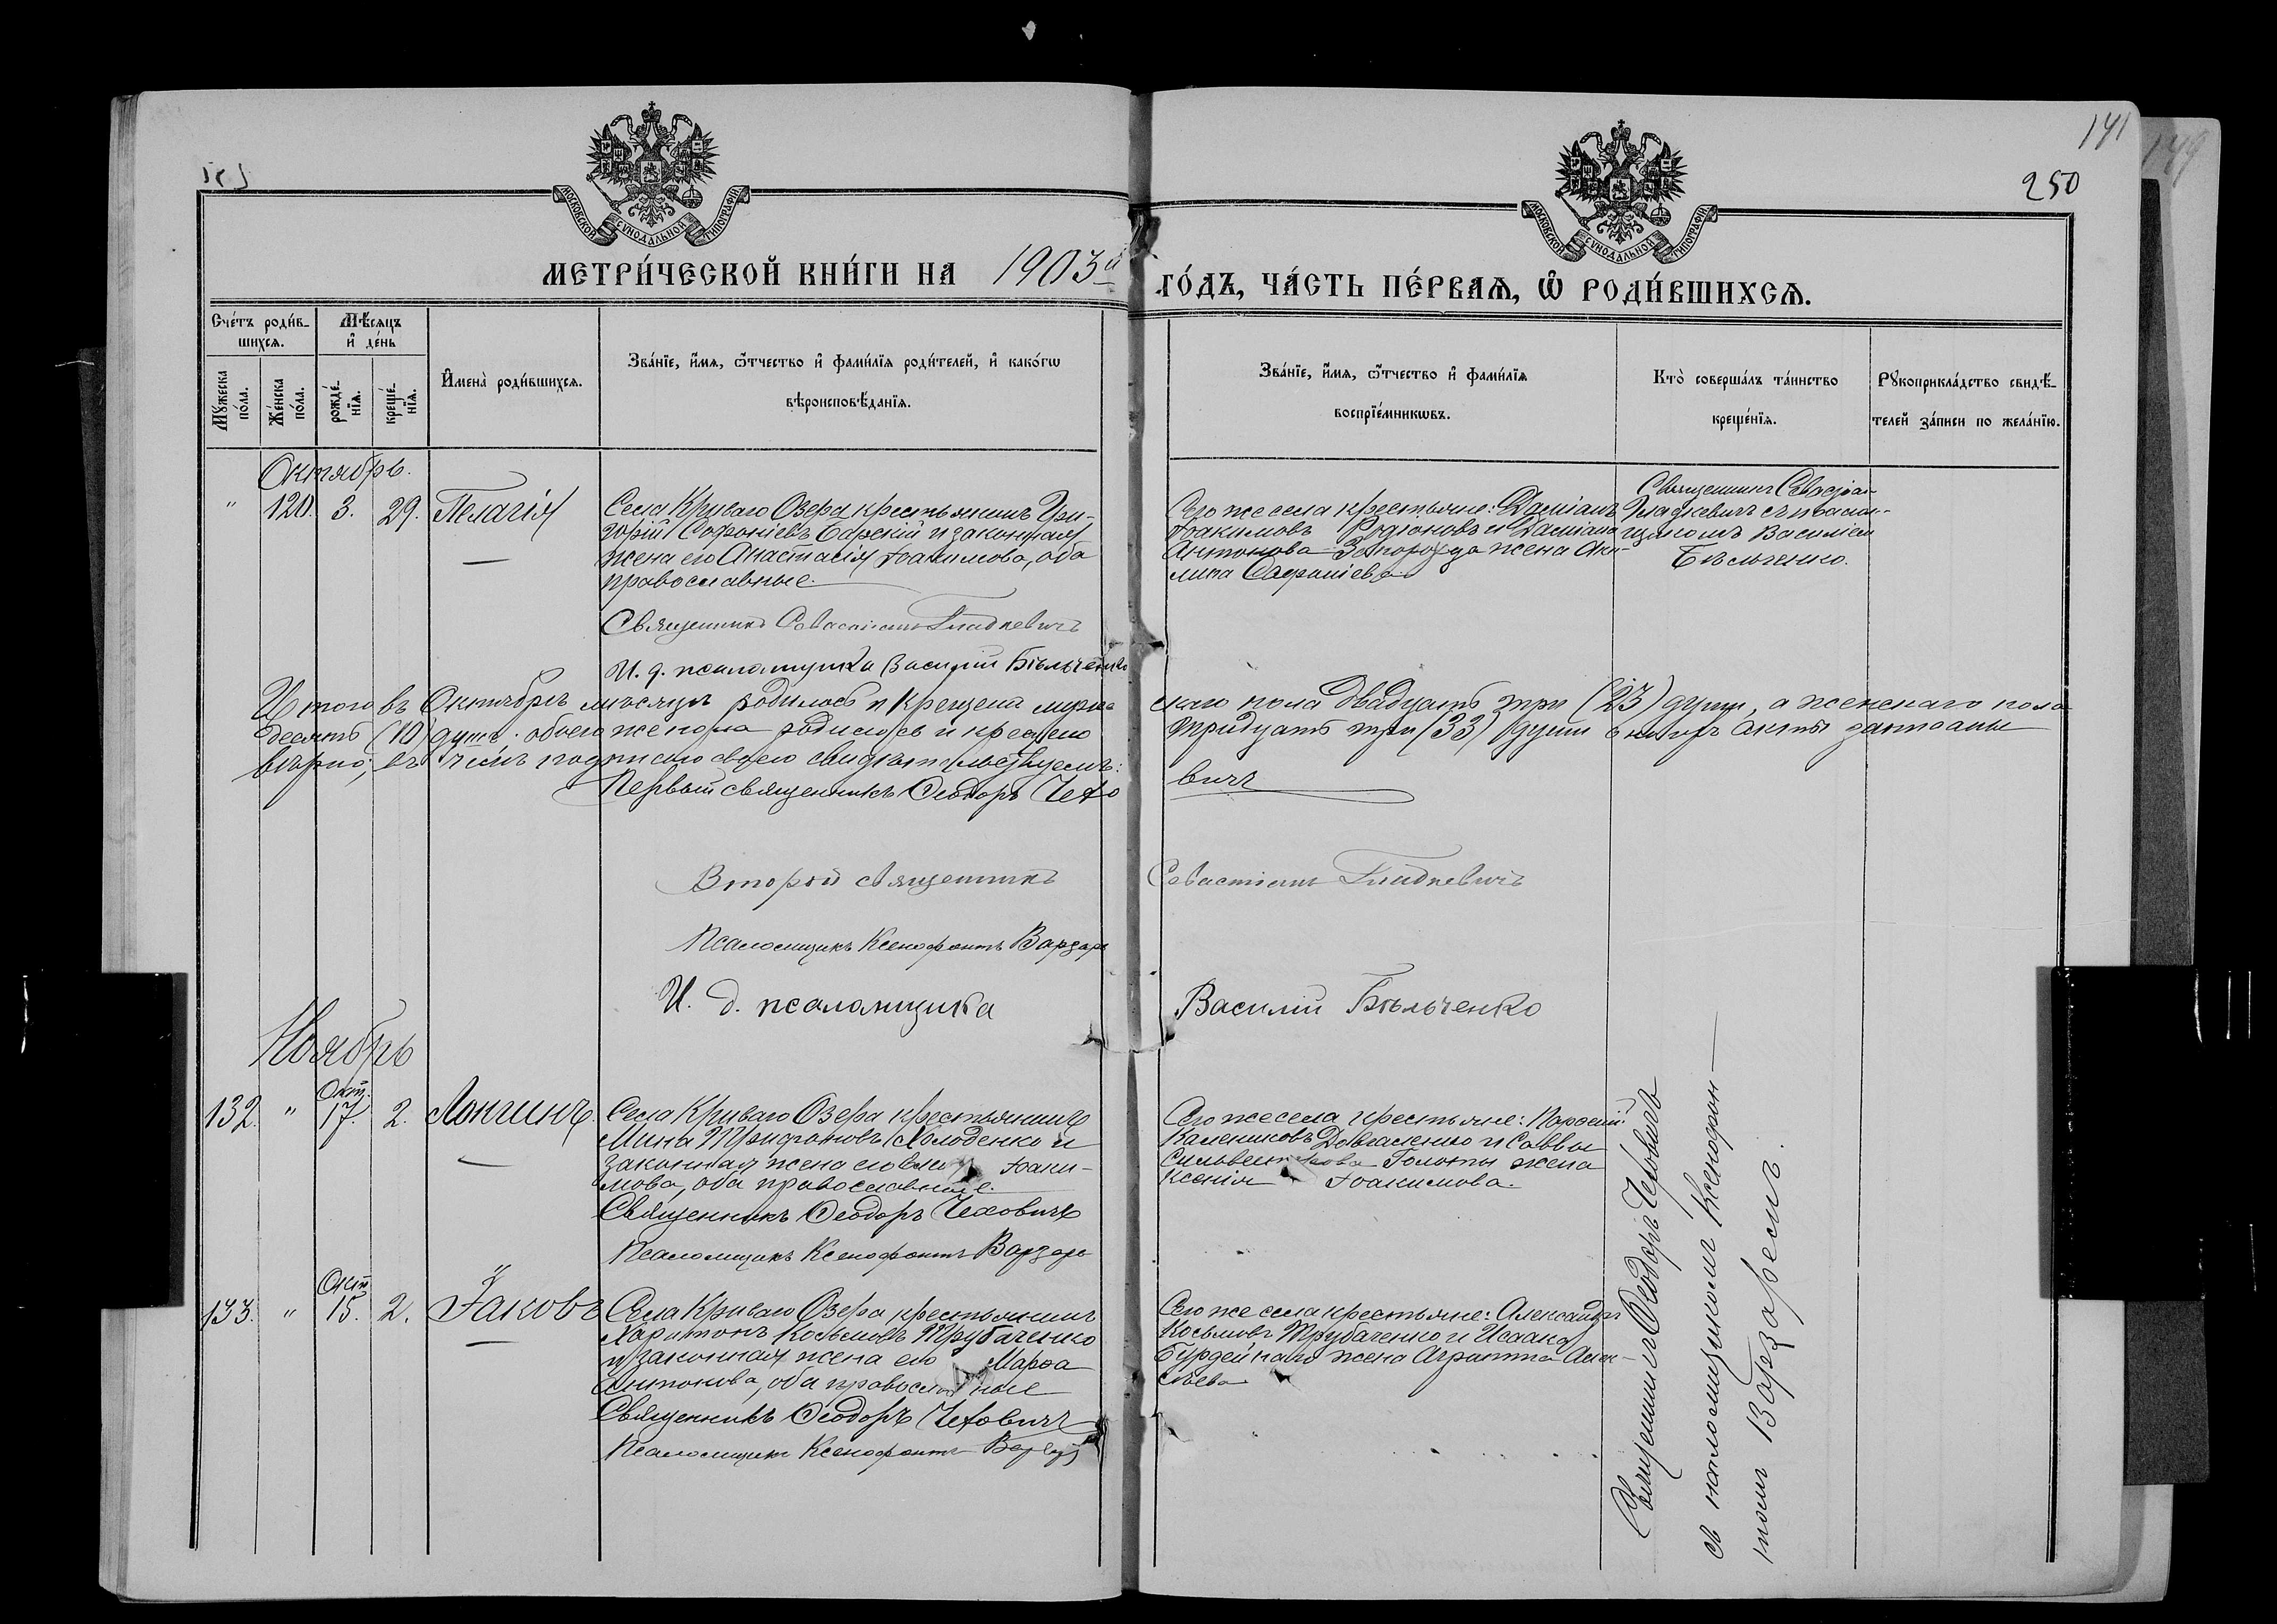 141
250
МОСКОВСКОЙ СѴНОДАЛЬНОЙ ТИПОГРАФІИ
МОСКОВСКОЙ СѴНОДАЛЬНОЙ ТИПОГРАФІИ
МЕТРИ́ЧЕСКОЙ КНИ́ГИ НА 1903й ГО́ДЪ, ЧА́СТЬ ПЕ́РВАѦ, Ѡ҆ РОДИ́ВШИХСѦ.
Сче́тъ роди́в-
шихсѧ.
Мѣ́сѧцъ
и҆ де́нь
Мꙋ́жеска
по́ла.
Же́нска
по́ла.
рожде́-
нїѧ.
креще́-
нїѧ.
И҆мена̀ роди́вшихсѧ.
Зва́нїе, и҆́мѧ, ѻ҆́тчество и҆ фами́лїѧ роди́телей, и҆ како́гѡ
вѣроисповѣ́данїѧ.
Зва́нїе, и҆́мѧ, ѻ҆́тчество и҆ фами́лїѧ
воспрїе́мникѡвъ.
Кто̀ соверша́лъ та́инство
креще́нїѧ.
Рꙋкоприкла́дство свидѣ́-
телей за́писи по жела́нїю.
Октябрь.
" 120. 3. 29. Пелагія
Села Криваго Озера крестьянинъ Гри-
горій Софроніевъ Барскій и законная
жена его Анастасія Іоакимова, оба
православные.
Священникъ Севастіанъ Гладкевичъ
И. д. псаломщика Василій Бѣльченко
Сего же села крестьяне: Даміанъ
Іоакимовъ Родіоновъ и Даміана
Антонова Запорожца жена Аки-
лина Софроніева
Священникъ Севастіан
Гладкевичъ съ псалом-
щикомъ Василіем
Бѣльченко.
Итого въ Октябрѣ мѣсяцѣ родилось и крещено мужескаго пола двадцать три (23) души, а женскаго пола
десять (10) душъ. обоего же пола родилось и крещено тридцать три (33) души акты записаны
вѣрно; въ чемъ подписомъ своею свидѣтельствуемъ:
Первый священникъ Ѳеодоръ Чеховичъ
Второй священникъ Севастіанъ Гладкевичъ
Псаломщикъ Ксенофонтъ Варзарь
И. д. псаломщика Василій Бѣльченко
Ноябрь
132. " Окт. 17. 2. Лонгинъ.
Села Криваго Озера крестьянинъ
Мина Трифоновъ Холоденко и
законная жена его Іоаки-
мова, оба православные.
Священникъ Ѳеодоръ Чеховичъ
Псаломщикъ Ксенофонтъ Варзарь
Сего же села крестьяне: Пар
Калениковъ Довгаленко и Саввы
Сильвестрова Голоты жена
Ксенія Іоакимова.
133. " Окт. 15. 2. Іаковъ
Села Криваго Озера крестьянинъ
Харитонъ Косьмовъ Трубаченко
и законная жена его Марѳа
Антонова, оба православные
Священникъ Ѳеодоръ Чеховичъ
Псаломщикъ Ксенофонтъ Варзарь
Сего же села крестьяне: Александръ
Косьмовъ Трубаченко и Исаака
Бурдейнаго жена Агриппина Алек-
сѣева
Священникъ Ѳеодоръ Чеховичъ
съ псаломщикомъ Ксенофон-
томъ Варзаремъ.